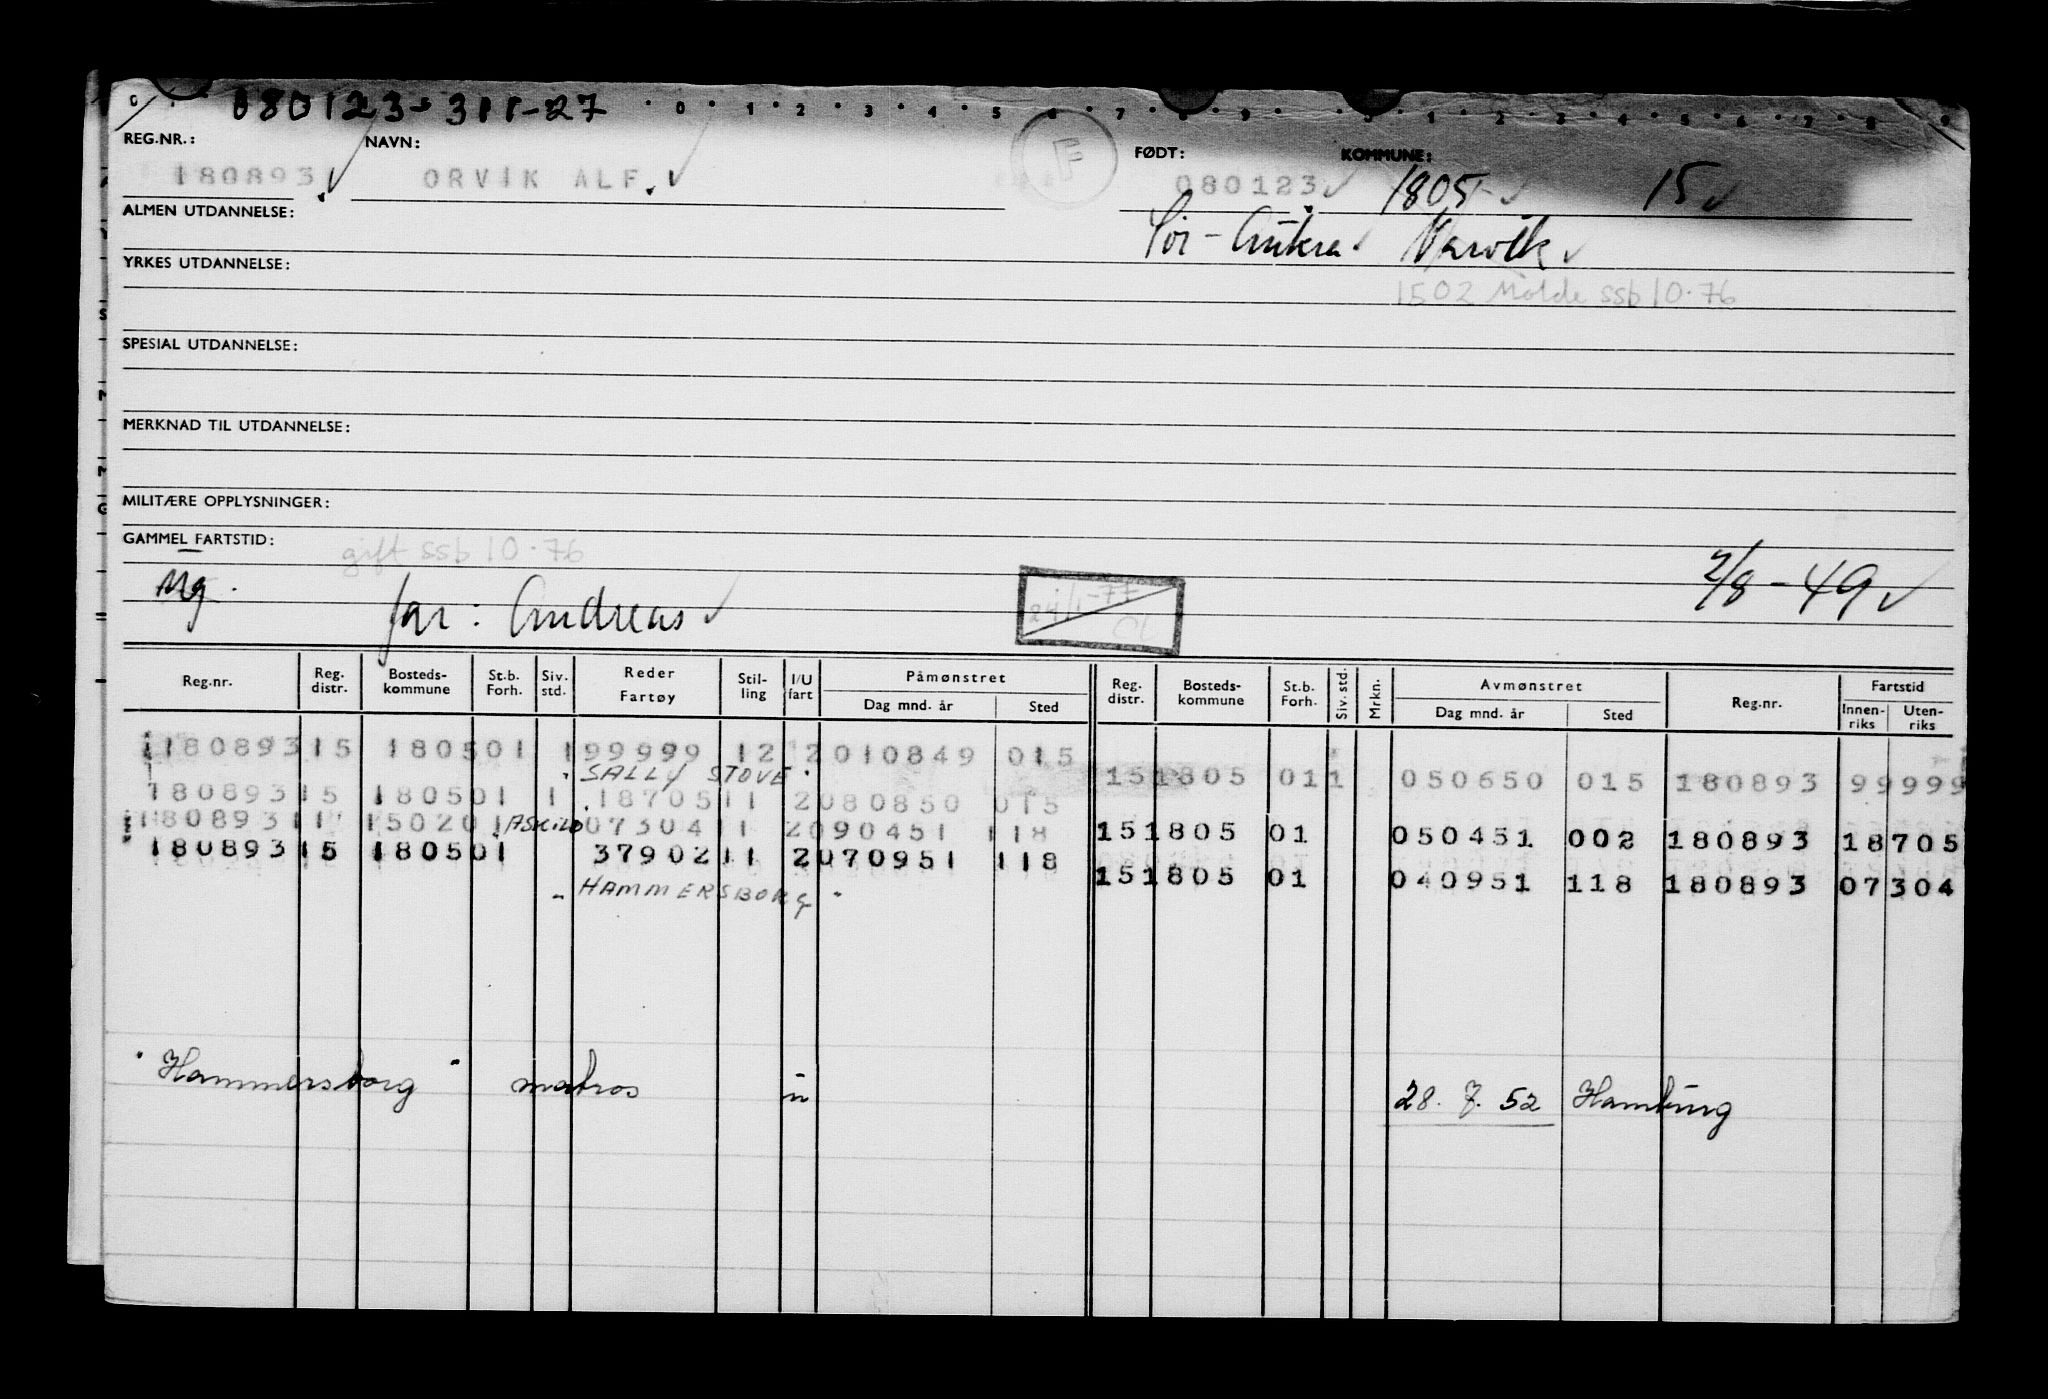 080123-311-27
0 1 2 3 4 5 6 7 8 9 0 1 2 3 4 5 6 7 8 9
REG.NR.: NAVN: FØDT: KOMMUNE:
180893 ORVIK ALF. F 080123 1805 15
ALMEN UTDANNELSE: Sør-Aukra Narvik
YRKES UTDANNELSE:
1502 Molde ssb 10.76
SPESIAL UTDANNELSE:
MERKNAD TIL UTDANNELSE:
MILITÆRE OPPLYSNINGER:
GAMMEL FARTSTID: gift ssb 10.76
Ug. far: Andreas 24/1-77 2/8-49
Reg.nr. Reg. distr. Bosteds-kommune St.b. Forh. Siv. std. Reder Fartøy Stil-ling I/U fart Påmønstret Dag mnd. år Sted Reg. distr. Bosteds-kommune St.b. Forh. Siv. std. Mrkn. Avmønstret Dag mnd. år Sted Reg.nr. Fartstid Innen-riks Uten-riks
180893 15 1805 01 1 99999 12 2 010849 015
"SALLY STOVE" 15 1805 01 1 050650 015 180893 99999
180893 15 1805 01 1 18705 11 2 080850 015
180893 11 1502 01 ASKILD 07304 11 2 090451 118 15 1805 01 050451 002 180893 18705
180893 15 1805 01 37902 11 2 070951 118
"HAMMERSBORG" 15 1805 01 040951 118 180893 07304
"Hammersborg" matros u 28. 7. 52 Hamburg